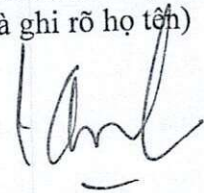 à ghi rõ họ tên)